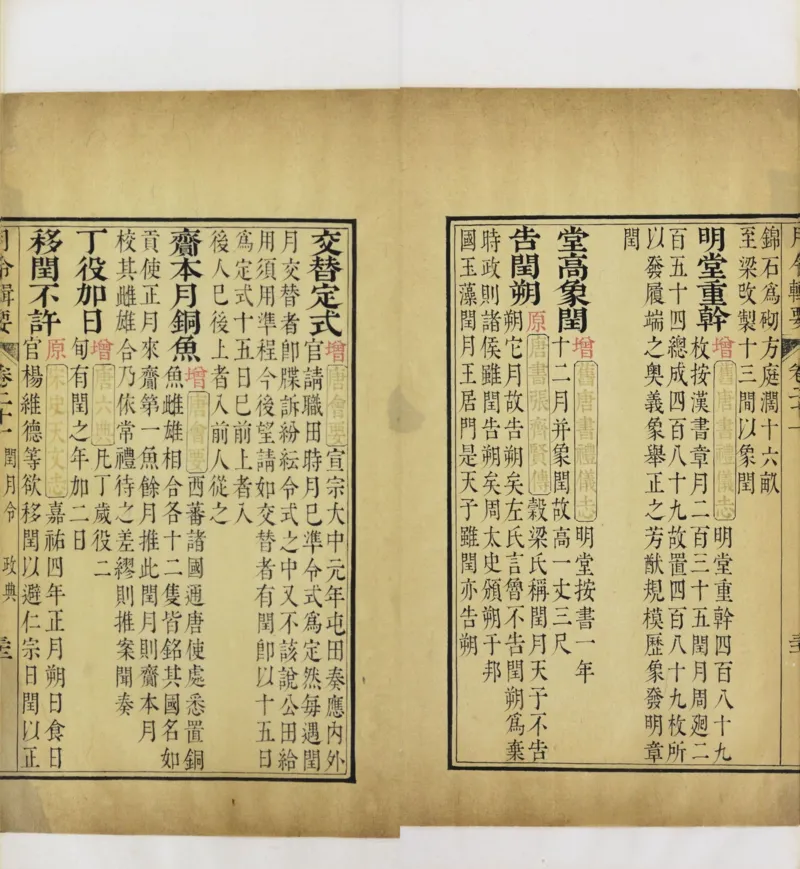 月令輯要 卷二十一
錦石為砌方庭濶十六畝
至梁改製十三間以象閏
明堂重幹 增 舊唐書禮儀志 明堂重幹四百八十九
枚按漢書章月二百三十五閏月周廻二
百五十四總成四百八十九故置四百八十九枚所
以發履端之奧義象舉正之芳猷規模歷象發明章
閏
堂高象閏 增 舊唐書禮儀志 明堂按書一年
十二月并象閏故高一丈三尺
告閏朔 原 唐書張齊賢傳 穀梁氏稱閏月天子不告
朔它月故告朔矣左氏言魯不告閏朔為棄
時政則諸侯雖閏告朔矣周太史頒朔于邦
國玉藻閏月王居門是天子雖閏亦告朔
交替定式 增 唐會要 宣宗大中元年屯田奏應內外
官請職田時月已準令式為定然每遇閏
月交替者卽牒訴紛紜令式之中又不該說公田給
用須用準程今後望請如交替者有閏卽以十五日
為定式十五日已前上者入
後人已後上者入前人從之
齎本月銅魚 增 唐會要 西蕃諸國通唐使處悉置銅
魚雌雄相合各十二隻皆銘其國名如
貢使正月來齎第一魚餘月推此閏月則齎本月
校其雌雄合乃依常禮待之差繆則推案聞奏
丁役加日 增 唐六典 凡丁歲役二
旬有閏之年加二日
移閏不許 原 宋史天文志 嘉祐四年正月朔日食日
官楊維德等欲移閏以避仁宗日閏以正
月令輯要 卷二十一 閏月令 政典